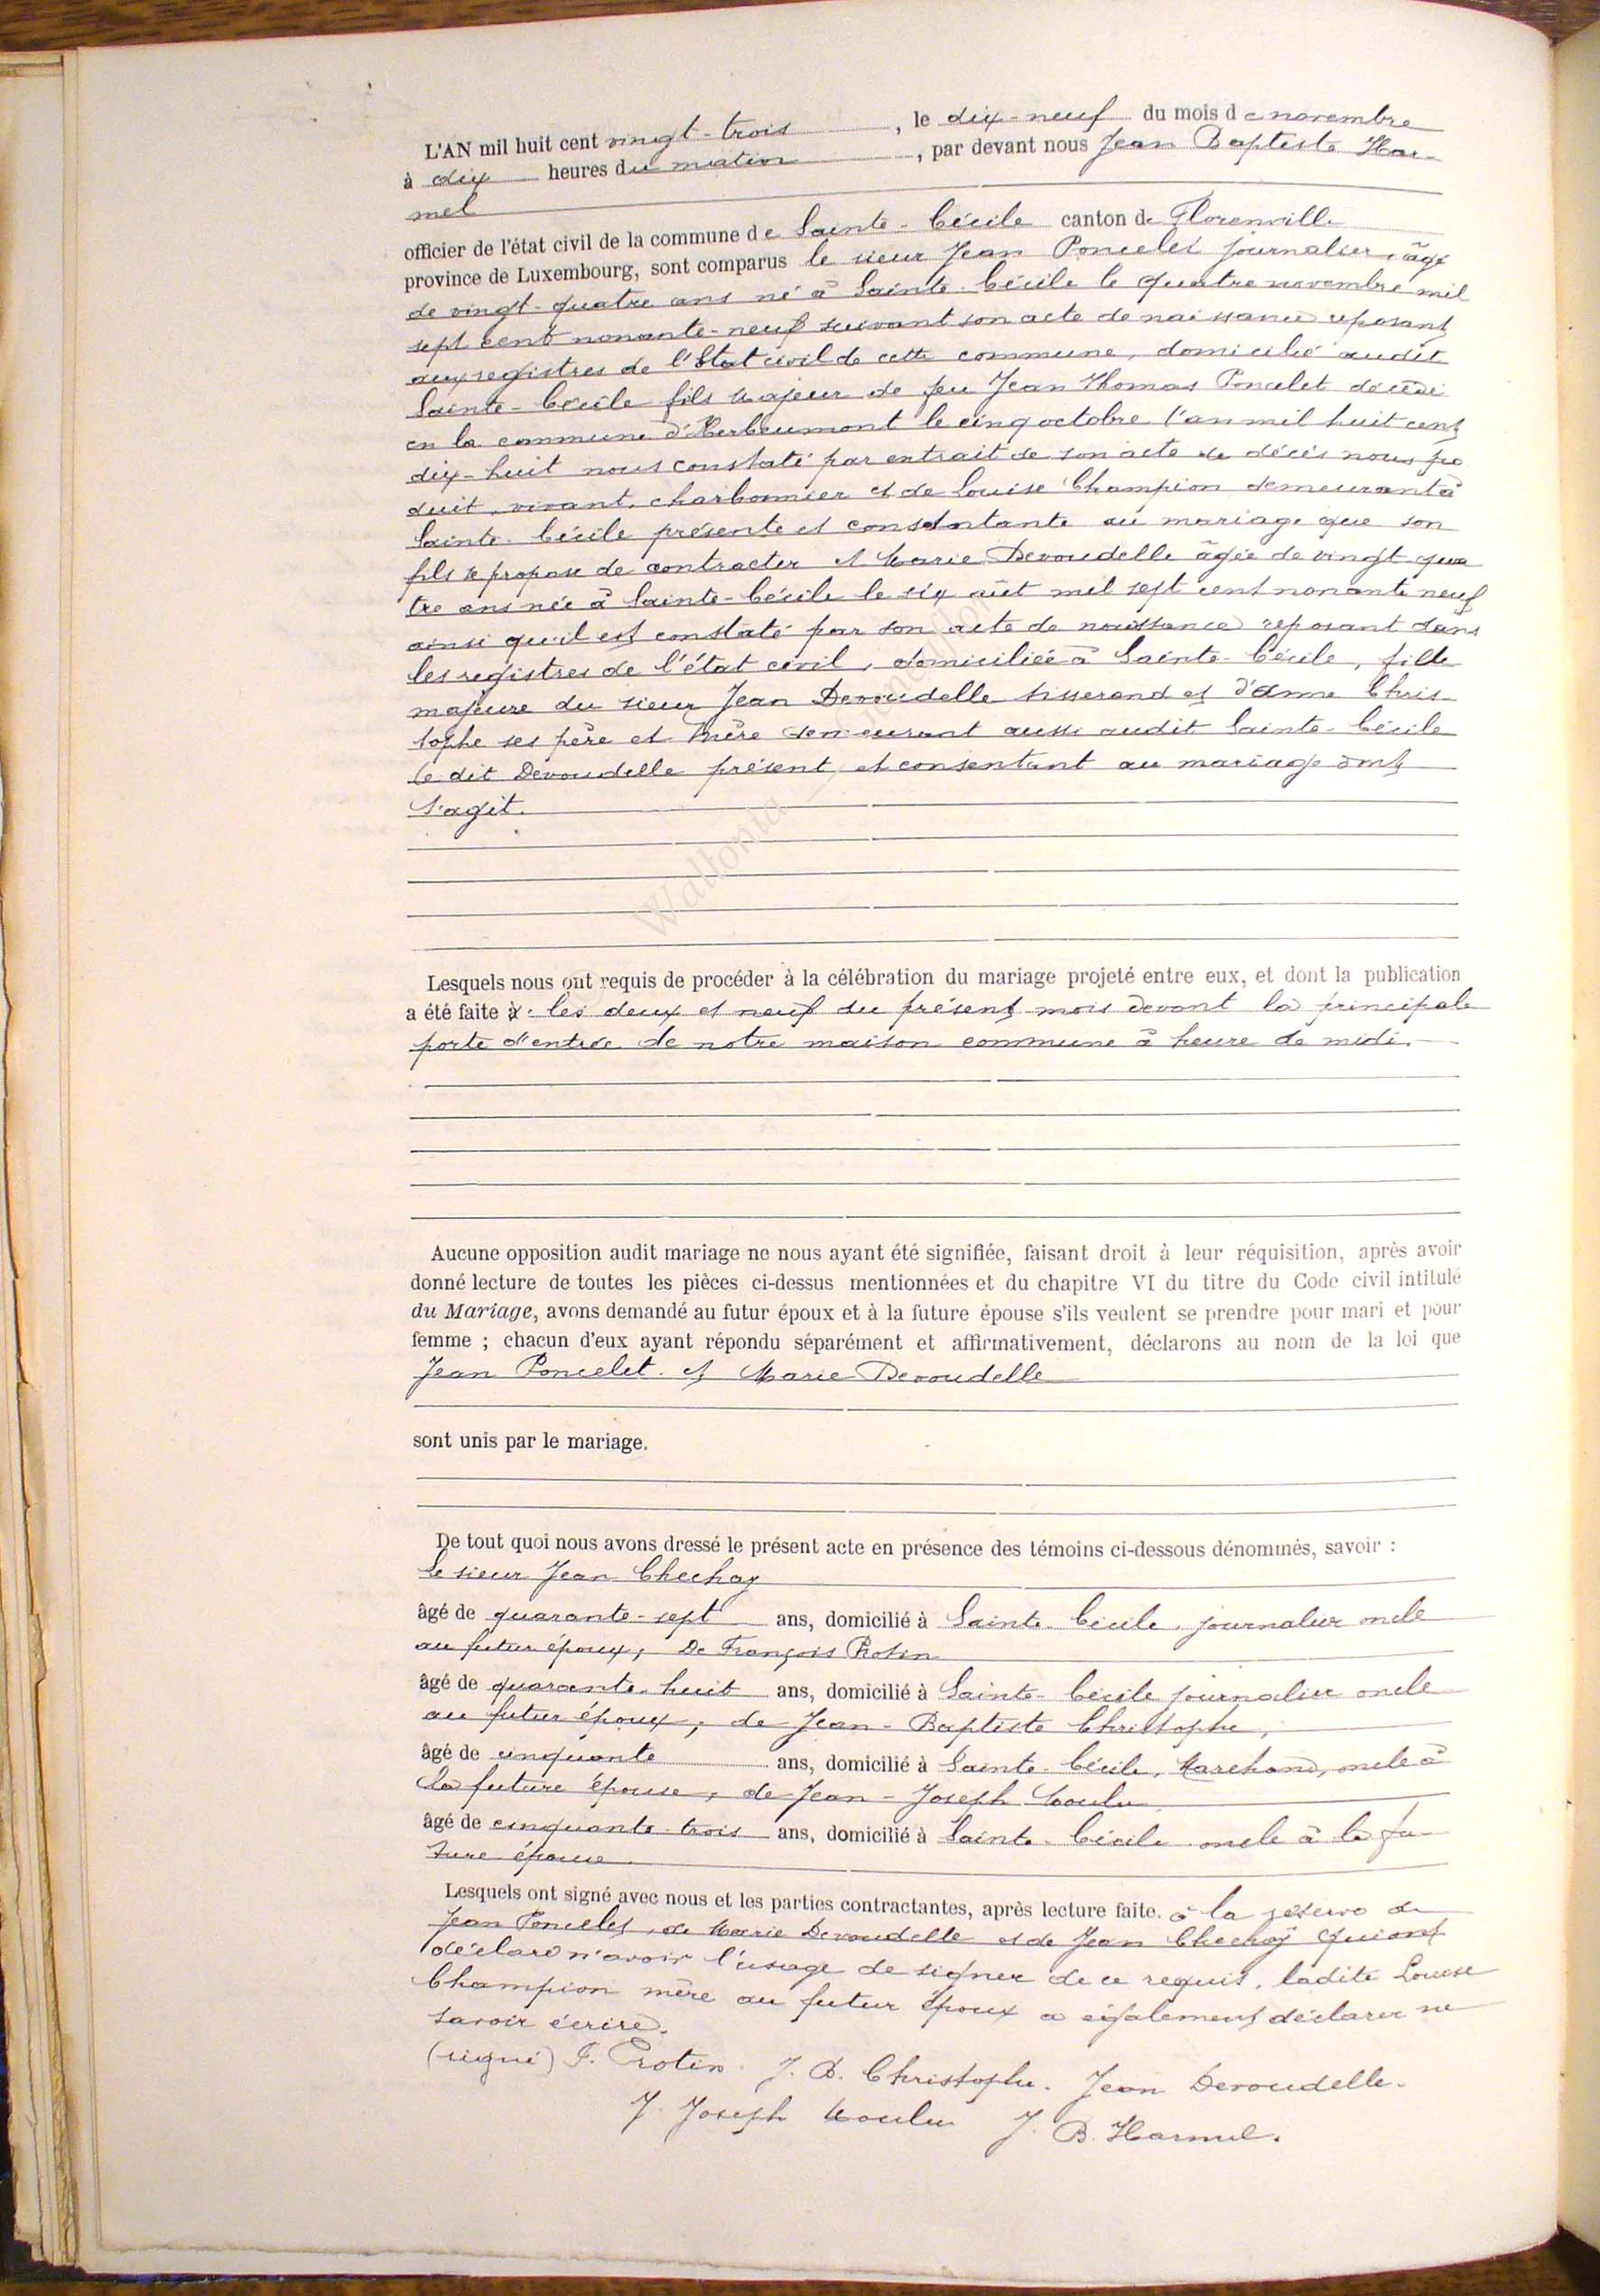 L'AN mil huit cent vingt-trois, le dix-neuf du mois de novembre
à dix heures du matin, par devant nous Jean Baptiste Har-
mel
officier de l'état civil de la commune de Sainte-Cécile canton de Florenville
province de Luxembourg, sont comparus le sieur Jean Poncelet journalier, âgé
de vingt-quatre ans né à Sainte-Cécile le quatre novembre mil
sept cent nonante-neuf suivant son acte de naissance reposant
aux registres de l'Etat civil de cette commune, domicilié audit
Sainte-Cécile fils majeur de feu Jean Thomas Poncelet décédé
en la commune d'Herbeumont le cinq octobre l'an mil huit cent
dix-huit nous constaté par extrait de son acte de décès nous pro
duit, vivant, charbonnier et de Louise Champion demeurant à
Sainte-Cécile présente et consentante au mariage que son
fils se propose de contracter et Marie Devoudelle âgée de vingt-qua
tre ans née à Sainte-Cécile le six aût mil sept cent nonante neuf
ainsi qu'il est constaté par son acte de naissance reposant dans
les registres de l'état civil, domiciliée à Sainte-Cécile, fille
majeure du sieur Jean Devoudelle tisserand et d'Anne Chris-
tophe ses père et mère demeurant aussi audit Sainte-Cécile
le dit Devoudelle présent et consentant au mariage dont
s'agit.
Wallonia
Lesquels nous ont requis de procéder à la célébration du mariage projeté entre eux, et dont la publication
a été faite à les deux et neuf du présent mois devant la principale
porte d'entrée de notre maison commune à heure de midi.
Aucune opposition audit mariage ne nous ayant été signifiée, faisant droit à leur réquisition, après avoir
donné lecture de toutes les pièces ci-dessus mentionnées et du chapitre VI du titre du Code civil intitulé
du Mariage, avons demandé au futur époux et à la future épouse s'ils veulent se prendre pour mari et pour
femme ; chacun d'eux ayant répondu séparément et affirmativement, déclarons au nom de la loi que
Jean Poncelet. et Marie Devoudelle
sont unis par le mariage.
De tout quoi nous avons dressé le présent acte en présence des témoins ci-dessous dénommés, savoir :
le sieur Jean Chechoy
âgé de quarante-sept ans, domicilié à Sainte-Cécile, journalier oncle
au futur époux, De François Protin
âgé de quarante-huit ans, domicilié à Sainte-Cécile journalier oncle
au futur époux, de Jean-Baptiste Christophe,
âgé de cinquante ans, domicilié à Sainte-Cécile, Marchand, oncle à
la future épouse, de Jean-Joseph Moulu
âgé de cinquante-trois ans, domicilié à Sainte-Cécile oncle à la fu-
ture épouse
Lesquels ont signé avec nous et les parties contractantes, après lecture faite. à la réserve de
Jean Poncelet, de Marie Devoudelle et de Jean Chechoy qui ont
déclaré n'avoir l'usage de signer de ce requis, ladite Louise
Champion mère au futur époux a également déclarer ne
savoir écrire.
(signé) F. Protin. J. B. Christophe. Jean Devoudelle.
J. Joseph Moulu J. B. Harmel.